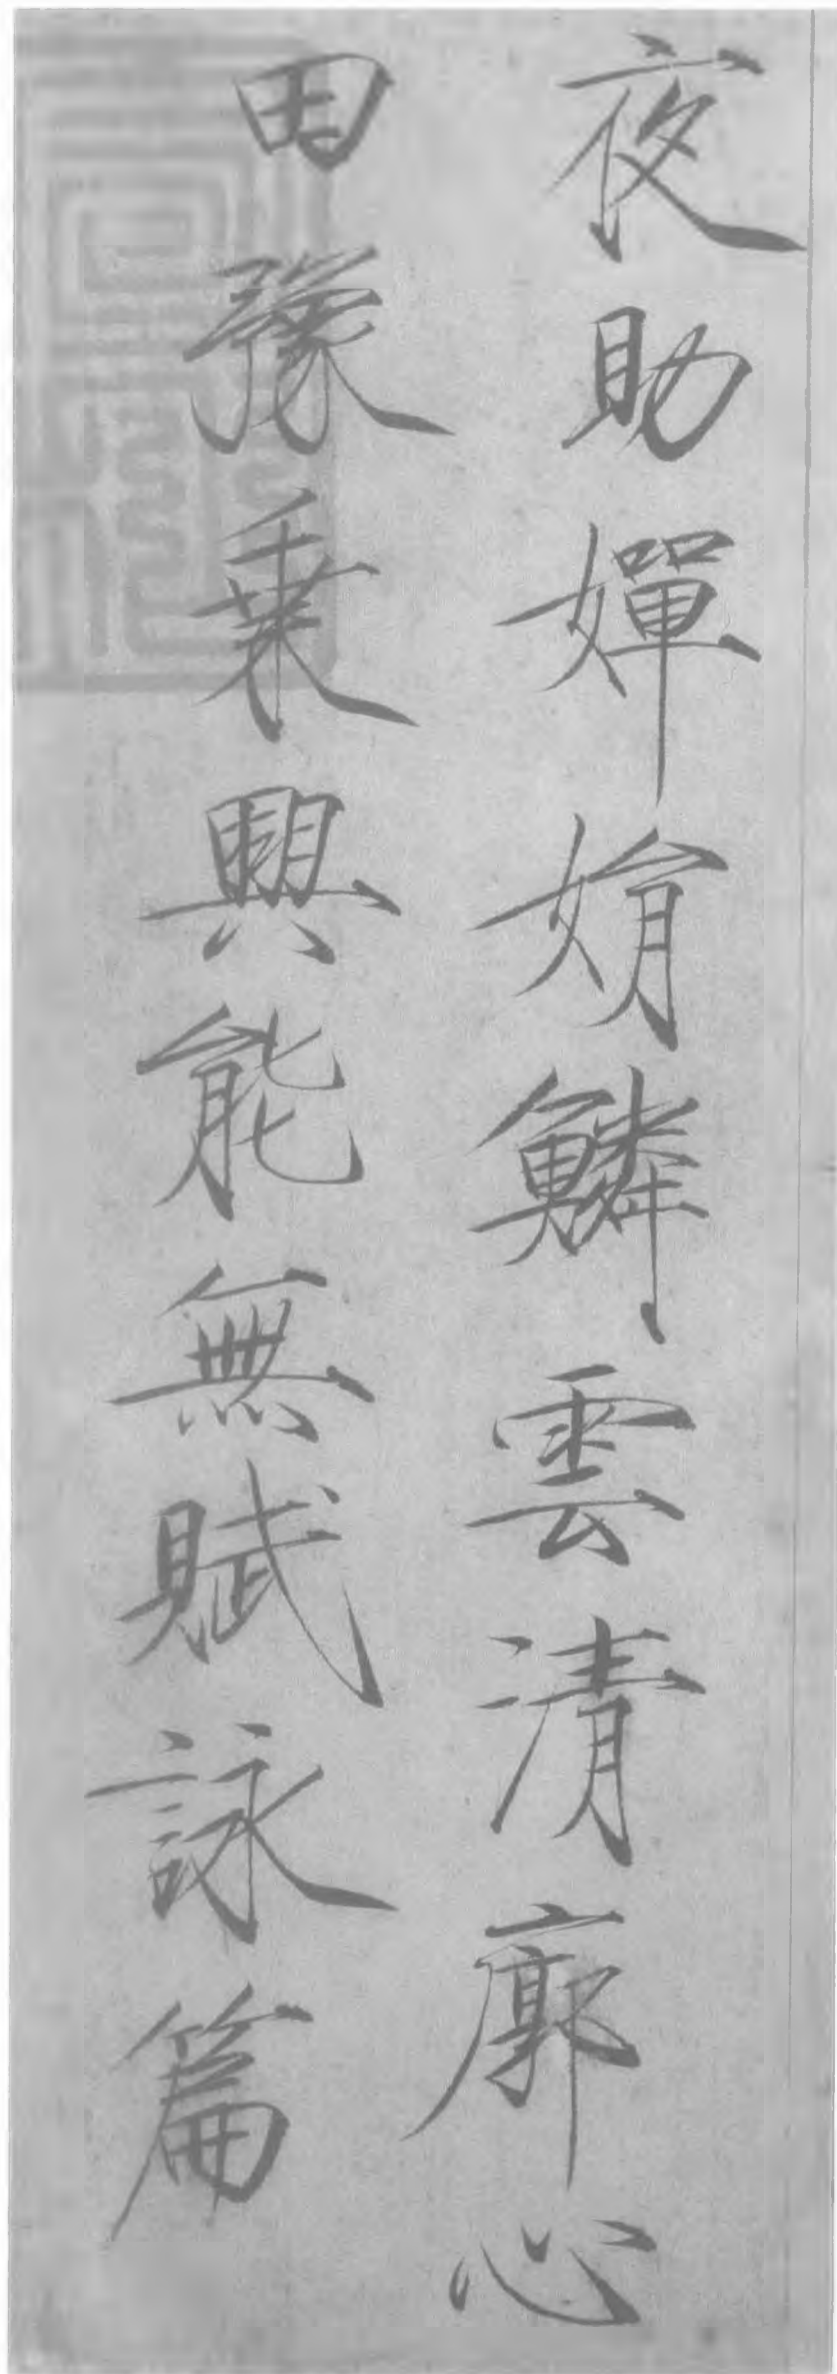 夜助嬋娟鱗雲清廓心
田豫乘興能無賦詠篇